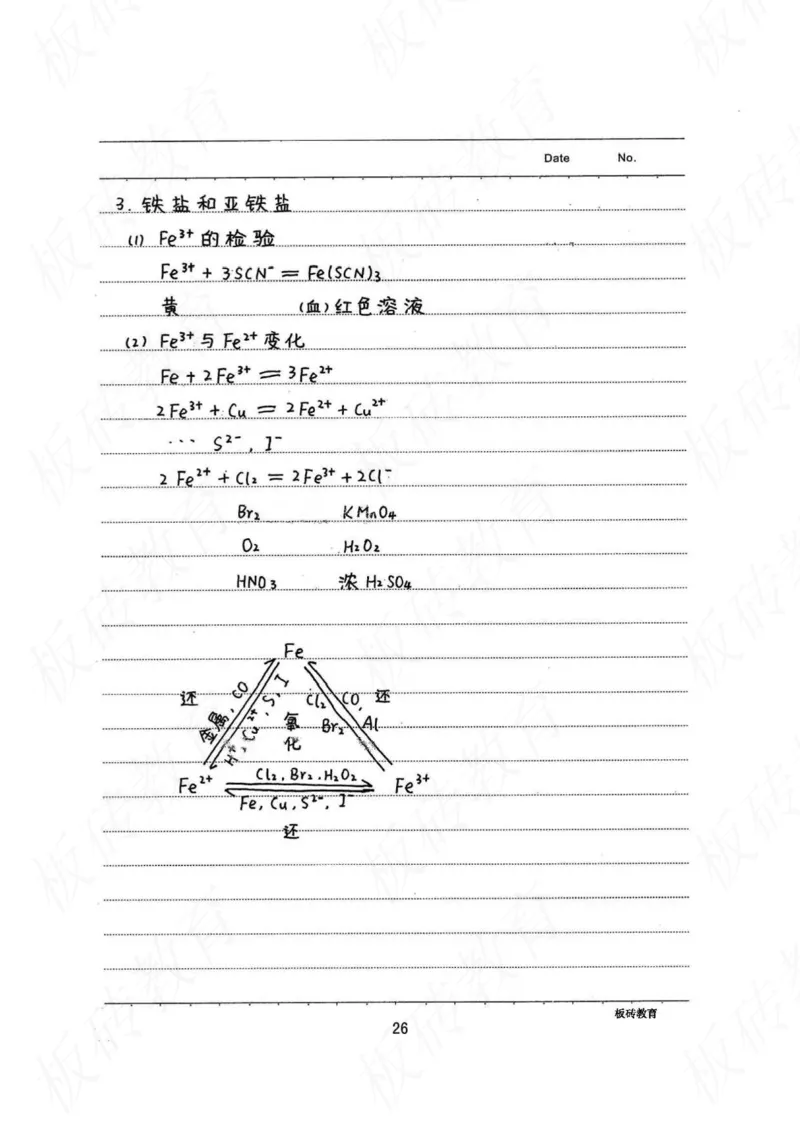 Date No.
3. 铁盐和亚铁盐
(1) Fe³⁺的检验
Fe³⁺ + 3SCN⁻ = Fe(SCN)₃
黄 (血)红色溶液
(2) Fe³⁺与Fe²⁺变化
Fe + 2Fe³⁺ = 3Fe²⁺
2Fe³⁺ + Cu = 2Fe²⁺ + Cu²⁺
… S²⁻, I⁻
2Fe²⁺ + Cl₂ = 2Fe³⁺ + 2Cl⁻
Br₂ KMnO₄
O₂ H₂O₂
HNO₃ 浓H₂SO₄
Fe
还 金属, CO
H⁺, Cu²⁺, S, I
氧化
Cl₂ Br₂
CO, Al 还
Fe²⁺ Cl₂, Br₂, H₂O₂ Fe³⁺
Fe, Cu, S²⁻, I⁻
还
板砖教育
26
板砖教育